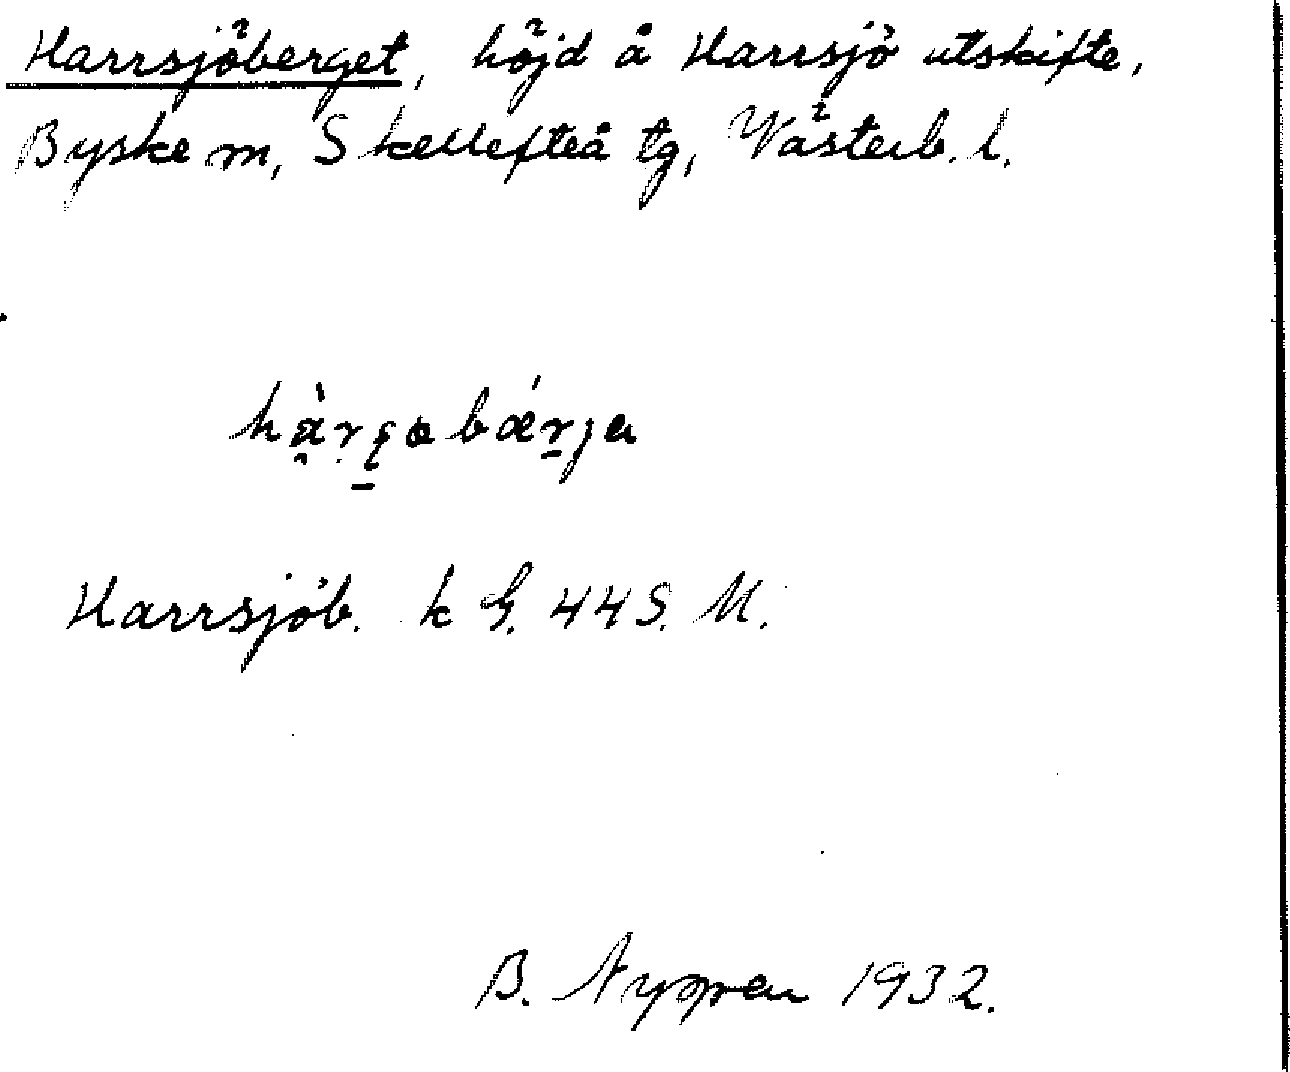 Harrsjöberget, höjd å Harrsjö utskifte,
Byske sn, Skellefteå tg, Västerb. l.
Harrsjöb. k G. 44 S. M.
B. Nygren 1932.